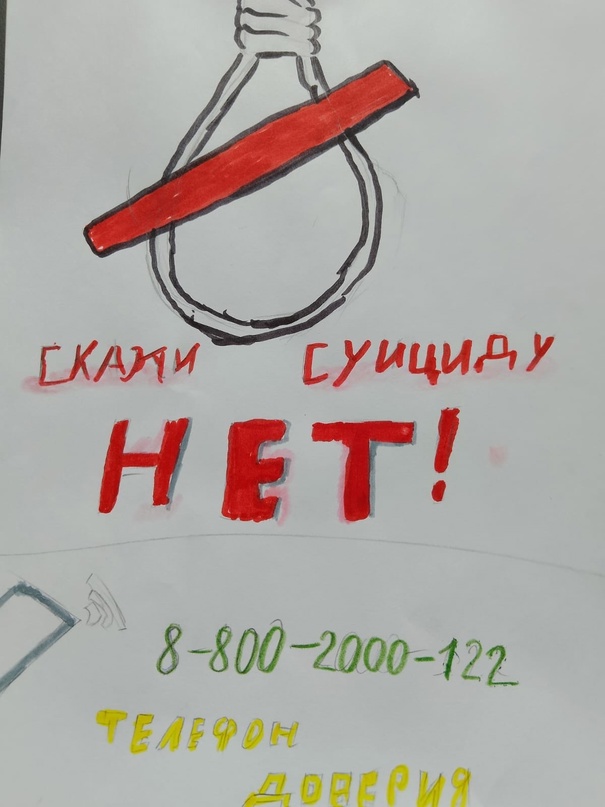 СКАЖИ СУИЦИДУ
НЕТ!
8-800-2000-122
ТЕЛЕФОН
ДОВЕРИЯ